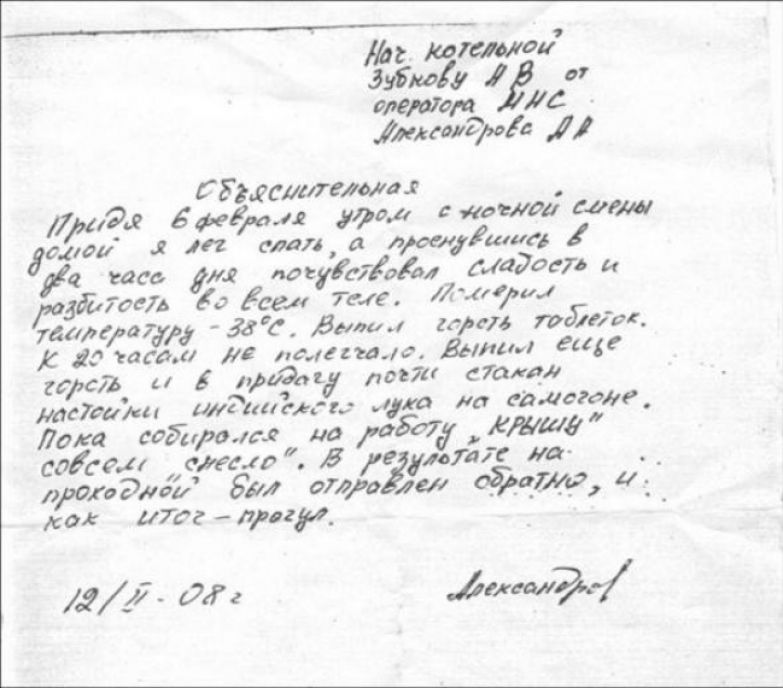 Нач. котельной
Зубкову А В от
оператора МНС
Александрова А А
Объяснительная
Придя 6 февраля утром с ночной смены
домой я лег спать, а проснувшись в
два часа дня почувствовал слабость и
разбитость во всем теле. Померил
температуру - 38°С. Выпил горсть таблеток.
К 20 часам не полегчало. Выпил еще
горсть и в придачу почти стакан
настойки индийского лука на самогоне.
Пока собирался на работу „крышу"
совсем снесло". В результате на
проходной был отправлен обратно, и
как итог - прогул.
12/II-08 г
Александров